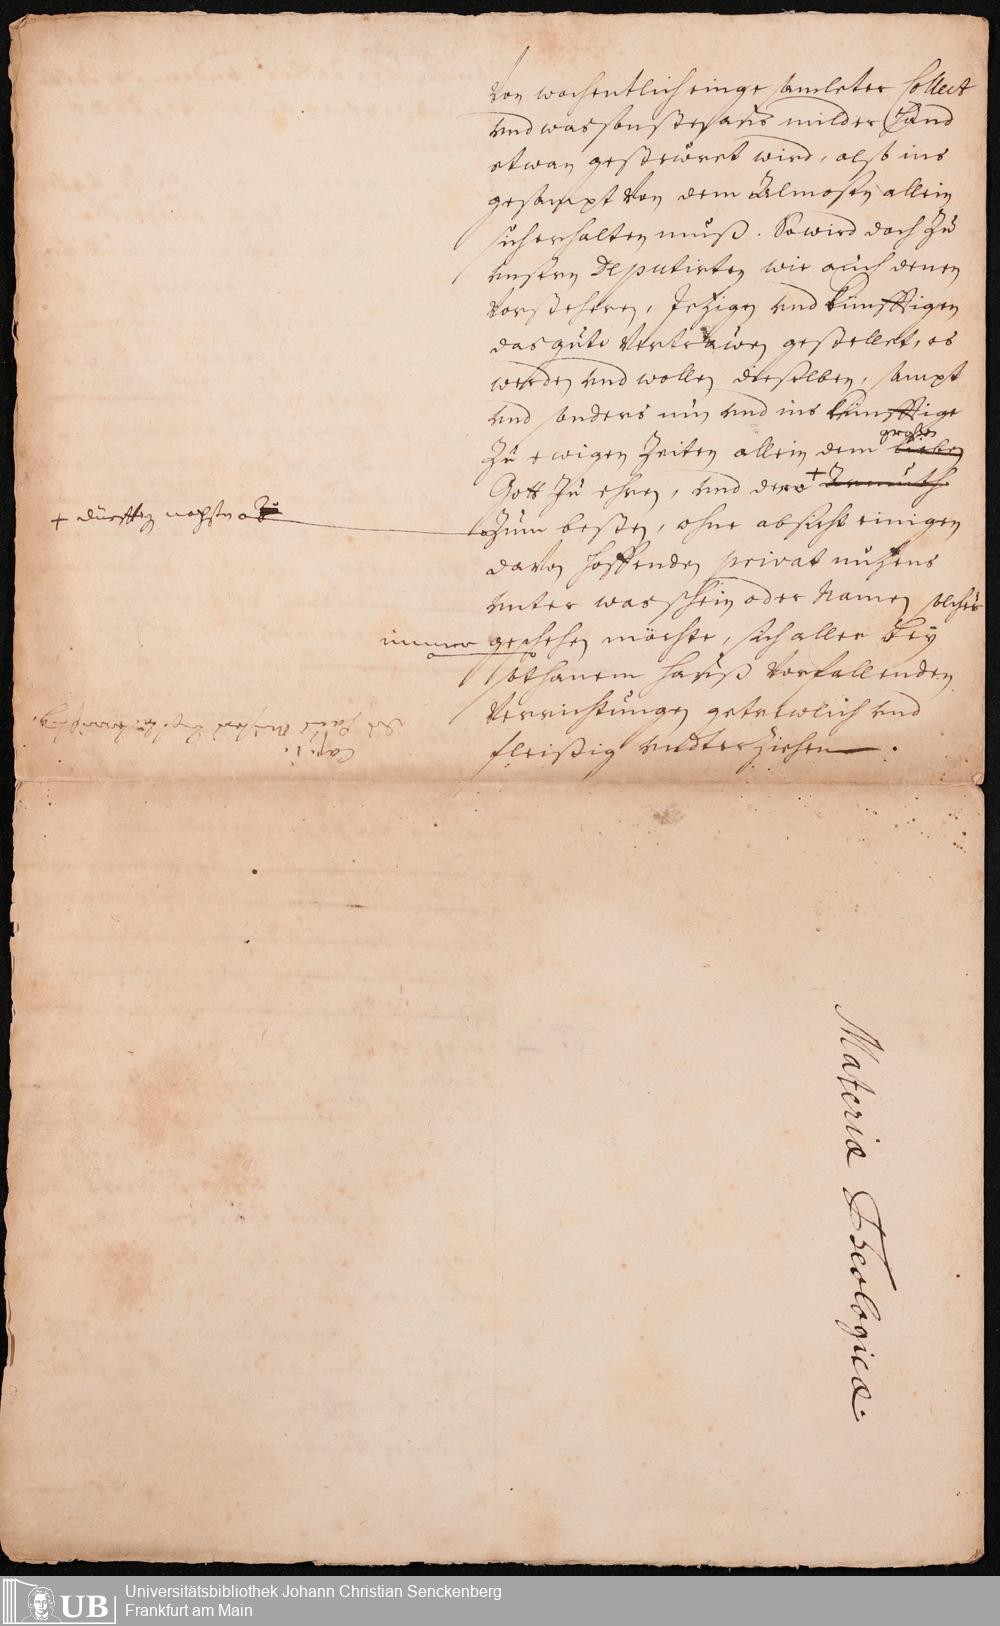 Von wochentlich eingesamleter Collect
vnd was sonsten auß milder Hand
etwan gestewret wird, alß ins
gesampt von dem Almosen allein
sich erhalten muß. So wird doch zu
vnsern Deputirten wie auch denen
Vorstehern, Jetzigen vnd künfftigen
das gute Vertrawen gestellet, es
werden vnd wollen dieselben, sampt
vnd sonders nun vnd ins künfftige
großen
Zu ewigen Zeiten allein dem lieben
Gott zu ehren, vnd dero + Armuth
+ dürfftigen nechsten
zum besten, ohne absicht einigen
davon hoffenden privat nutzens
vnter was schein oder Namen solches
immer geschehen möchte, sich aller bey
sothanem Hauß vorfallenden
Verrichtungen getrewlich vnd
fleißig vndterziehen.
Materia Theologica.
UB
Universitätsbibliothek Johann Christian Senckenberg
Frankfurt am Main